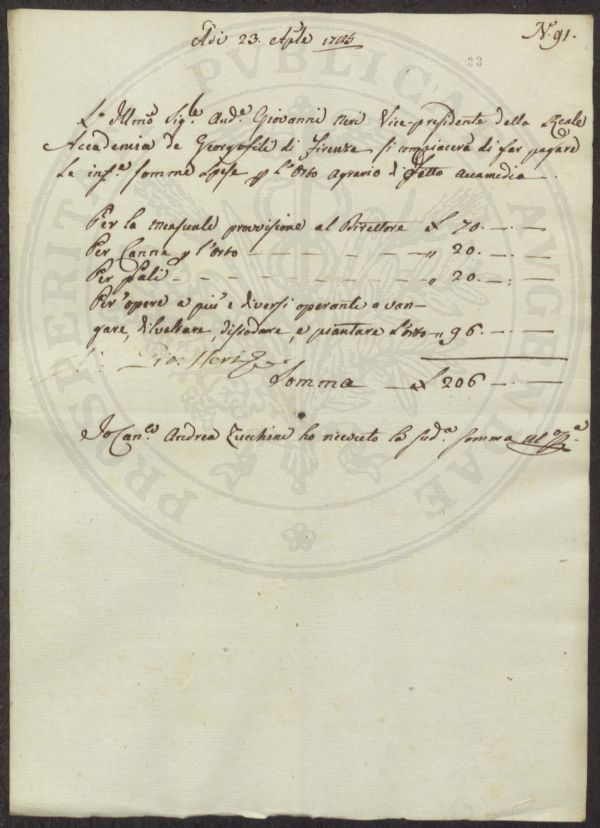 N. 91.
Adi 23. Aple 1786
23
L'Illmo Sigre Audre Giovanni Neri Vice-presidente della Reale
Accademia de Georgofili di Firenze si compiacerà di far pagare
le infe somme spese p l'Orto agrario di detta accamedia
Per la mensuale provvisione al Direttore £ 70. — . —
Per Canne p l'orto — — — — „ 20. — . —
Per pali — — — — — „ 20. — . —
Per opere a più e diversi operanti a van-
gare, divelare, dissodare, e piantare l'orto „ 96. — . —
Gio: Neri
Somma — £ 206 — . —
Io Canco Andrea Zucchini ho ricevuto la suda somma
PVBLICA
PROSPERITATI AVGENDAE